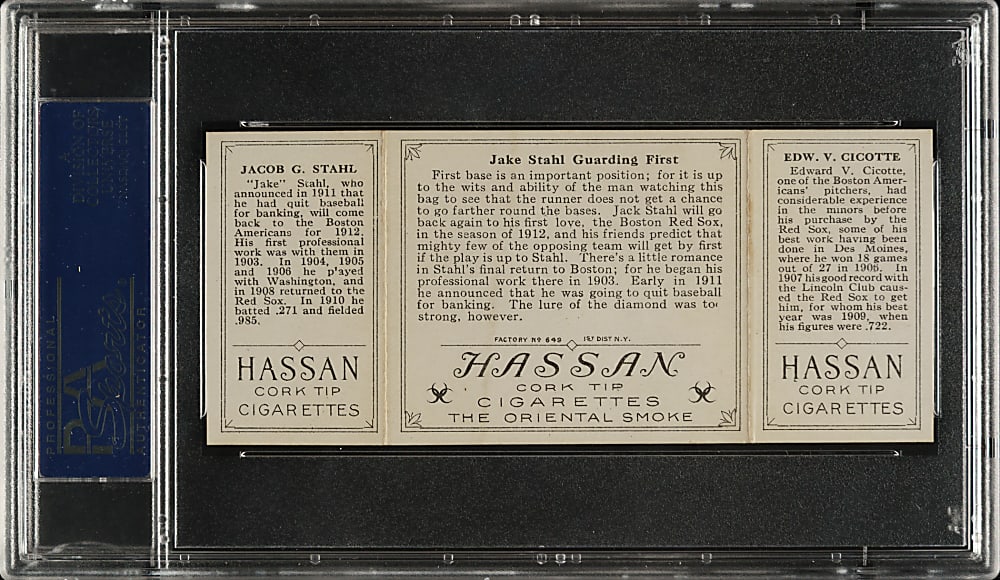 PROFESSIONAL
PSA
AUTHENTICATOR
JACOB G. STAHL
"Jake" Stahl, who
announced in 1911 that
he had quit baseball
for banking, will come
back to the Boston
Americans for 1912.
His first professional
work was with them in
1903. In 1904, 1905
and 1906 he played
with Washington, and
in 1908 returned to the
Red Sox. In 1910 he
batted .271 and fielded
.985.
HASSAN
CORK TIP
CIGARETTES
Jake Stahl Guarding First
First base is an important position; for it is up
to the wits and ability of the man watching this
bag to see that the runner does not get a chance
to go farther round the bases. Jack Stahl will go
back again to his first love, the Boston Red Sox,
in the season of 1912, and his friends predict that
mighty few of the opposing team will get by first
if the play is up to Stahl. There's a little romance
in Stahl's final return to Boston; for he began his
professional work there in 1903. Early in 1911
he announced that he was going to quit baseball
for banking. The lure of the diamond was too
strong, however.
FACTORY Nº 649 1ST DIST N.Y.
HASSAN
CORK TIP
CIGARETTES
THE ORIENTAL SMOKE
EDW. V. CICOTTE
Edward V. Cicotte,
one of the Boston Amer-
icans' pitchers, had
considerable experience
in the minors before
his purchase by the
Red Sox, some of his
best work having been
done in Des Moines,
where he won 18 games
out of 27 in 1906. In
1907 his good record with
the Lincoln Club caus-
ed the Red Sox to get
him, for whom his best
year was 1909, when
his figures were .722.
HASSAN
CORK TIP
CIGARETTES